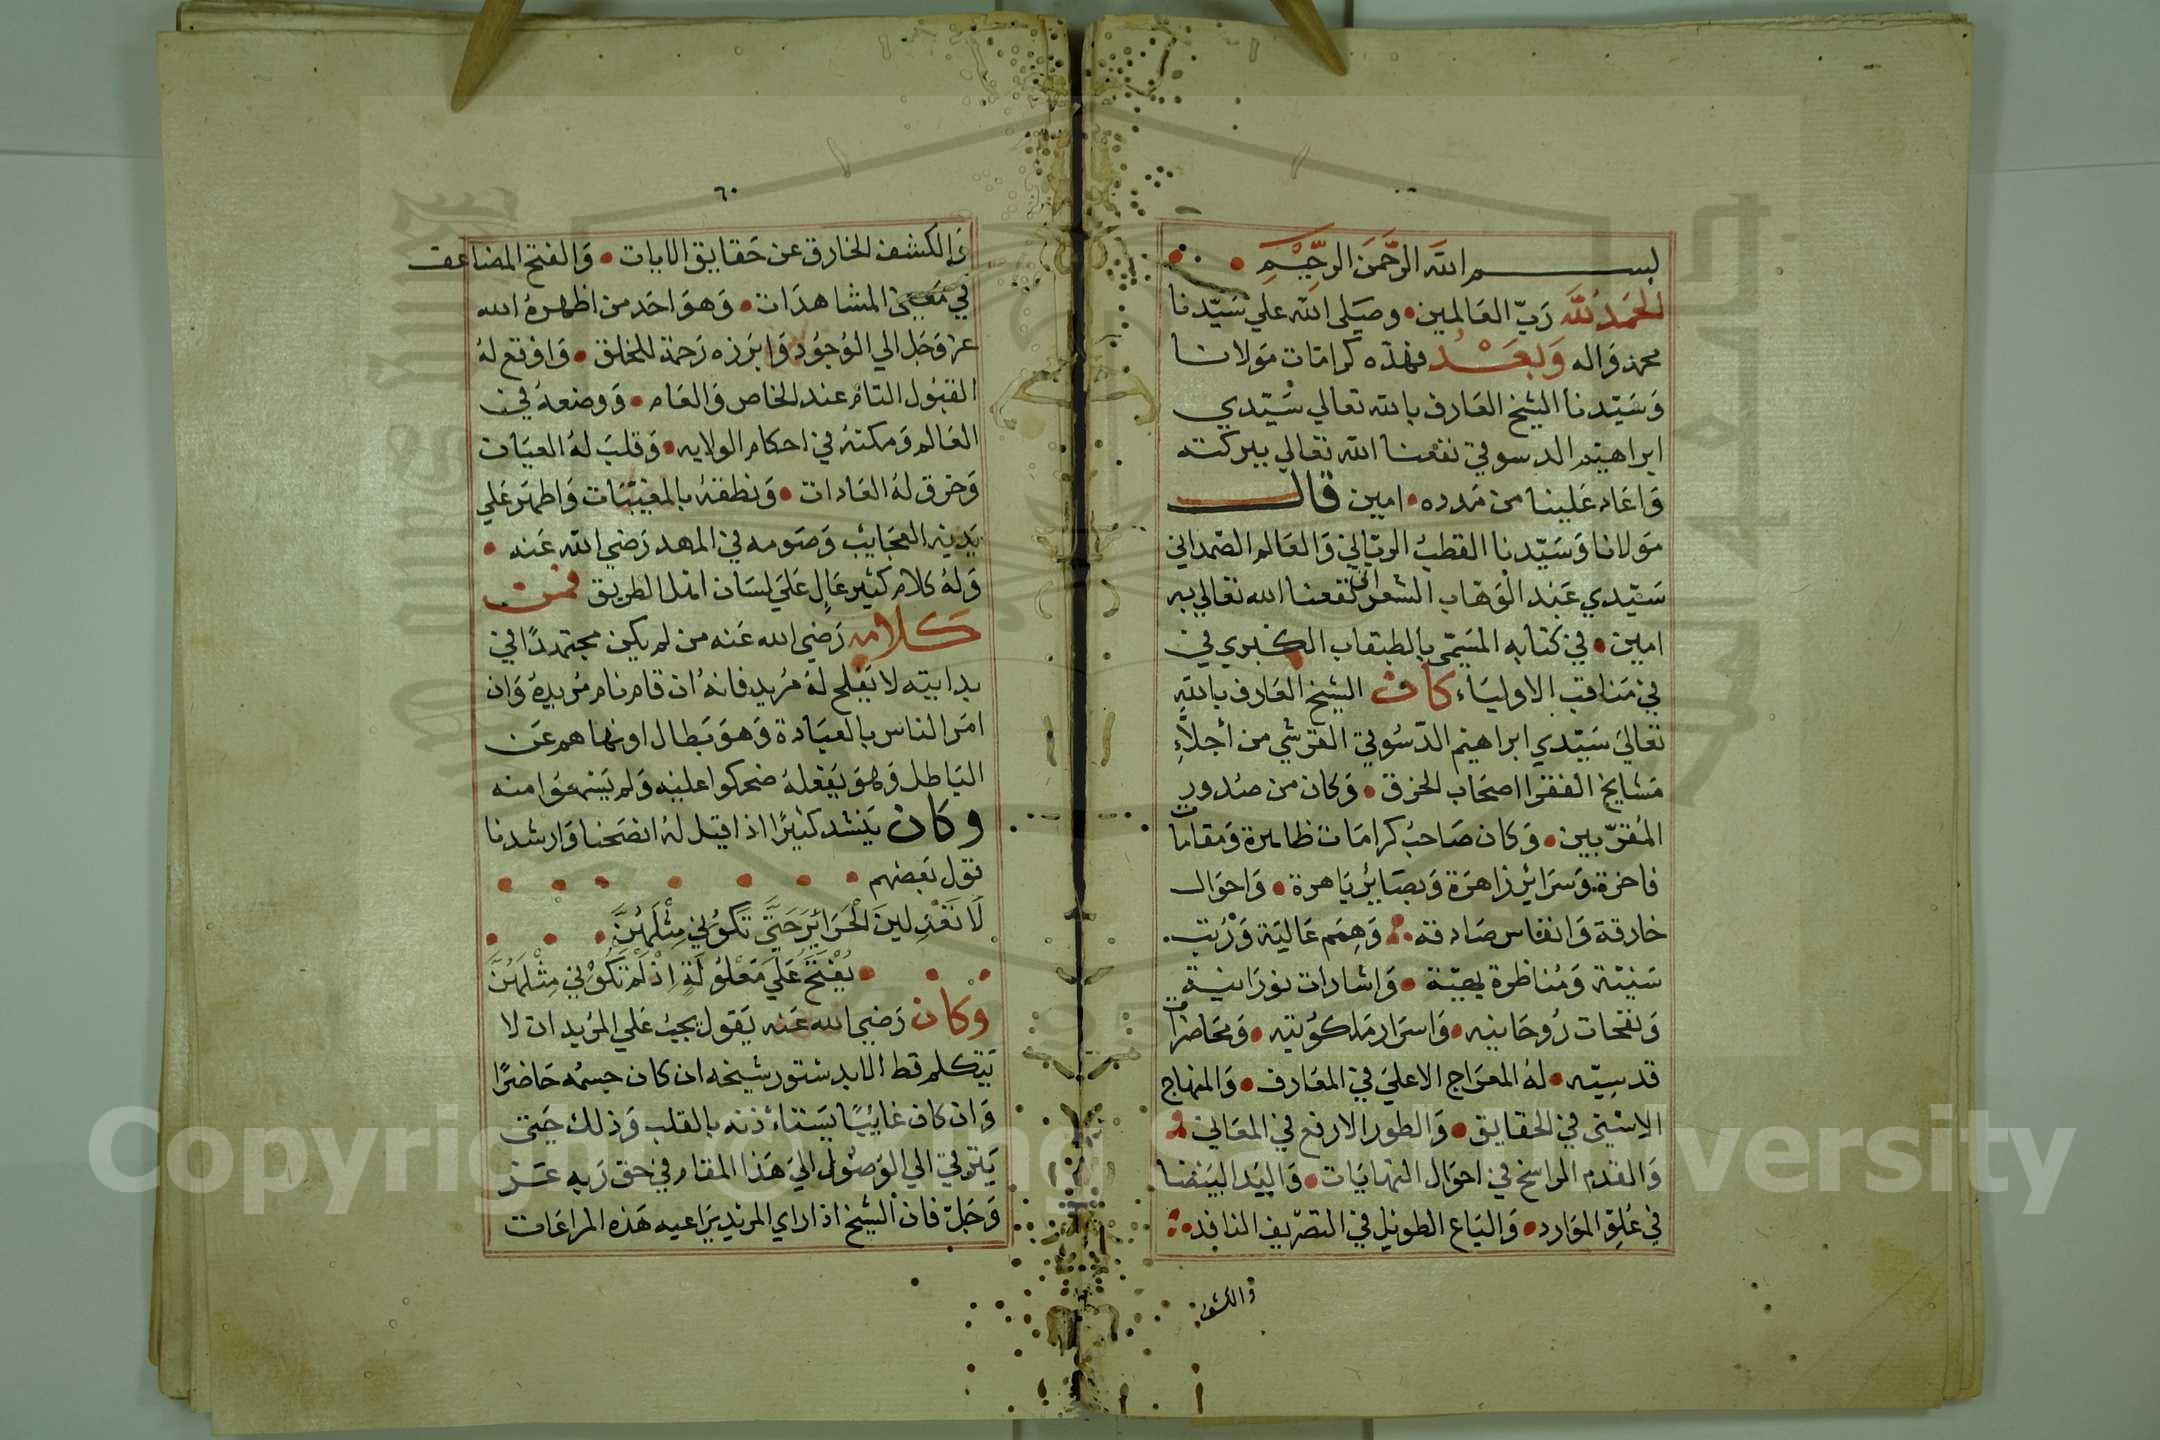 بسم الله الرحمن الرحيم
الحمد لله رب العالمين • وصلى الله علي سيّدنا
محمد واله وبعد فهذه كرامات مولانا
وسيّدنا الشيخ العارف بالله تعالي سيّدي
ابراهيم الدسوقي نفعنا الله تعالي ببركته
واعاد علينا من مدده • امين قال
مولانا وسيّدنا القطب الربّاني والعالم الصّمداني
سيّدي عبد الوهاب الشعراني نفعنا الله تعالي به
امين • في كتابه المسمّى بالطبقات الكبري في
في مناقب الاولياء كان الشيخ العارف بالله
تعالي سيّدي ابراهيم الدّسوقي القرشي من أجلّاءِ
مشايخ الفقرا اصحاب الخرق • وكان من صدور
المقرّبين • وكان صاحب كرامات ظاهرة ومقامات
فاخرة وسرائر زاهرة وبصائر باهرة • واحوال
خارقة وانفاس صادقه • وهمم عالية ورتب
سنيّة ومناظرة بهيّة • واشارات نورانية
ونفحات روحانيه • واسرار ملكوتيه • ومحاضرات
قدسيّه • له المعراج الاعلي في المعارف • والمنهاج
الاسنى في الحقايق • والطور الارفع في المعالي
والقدم الراسخ في احوال النهايات • واليد البيضا
في علوّ الموارد • والباع الطويل في التصريف النافد
والكشف
٦٠
والكشف الخارق عن حقايق الايات • والفتح المضاعف
في معنى المشاهدات • وهو احد من اظهره الله
عز وجل الي الوجود وابرزه رحمة للخلق • واوقع له
القبول التام عند الخاص والعام • ووضعه في
العالم ومكنه في احكام الولايه • وقلب له العيان
وخرق له العادات • ونطقه بالمغيّبات واظهر علي
يديه العجايب وصومه في المهد رضي الله عنه •
وله كلام كثير عالٍ على لسان اهل الطريق فمن
كلامه رضي الله عنه من لم يكن مجتمدًا في
بدايته لا يفلح له مريد فانه ان قام نام مريده وان
امر الناس بالعبادة وهو بطال او نهاهم عن
الباطل وهو يفعله ضحكوا عليه ولم يسمعوا منه
وكان ينشد كثيرًا اذا قيل له انصحنا وارشدنا
قول بعضهم •
لا تعدلين الحرائر حتّى تكوني مثلهنّ •
• يقبح على معلولة اذ لم تكوني مثلهن
وكان رضي الله عنه يقول يجب علي المريد ان لا
يتكلم قط الا بدستور شيخه ان كان جسمه حاضرًا
وان كان غائبًا يستاءذنه بالقلب وذلك حتى
يترقي الي الوصول الي هذا المقام في حق ربه عز
وجل فان الشيخ اذا راي المريد يراعيه هذه المراعات
Copyright © King Saud University